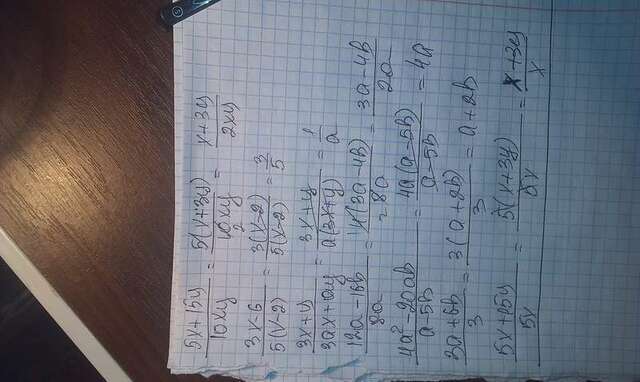 (5x+15y)/(10xy) = (5(x+3y))/(10xy) = (x+3y)/(2xy)
(3x-6)/(5(x-2)) = (3(x-2))/(5(x-2)) = 3/5
(3x+y)/(3ax+ay) = (3x+y)/(a(3x+y)) = 1/a
(12a-16b)/(8a) = (4(3a-4b))/(8a) = (3a-4b)/(2a)
(4a²-20ab)/(a-5b) = (4a(a-5b))/(a-5b) = 4a
(3a+6b)/3 = (3(a+2b))/3 = a+2b
(5x+15y)/(5x) = (5(x+3y))/(5x) = (x+3y)/x